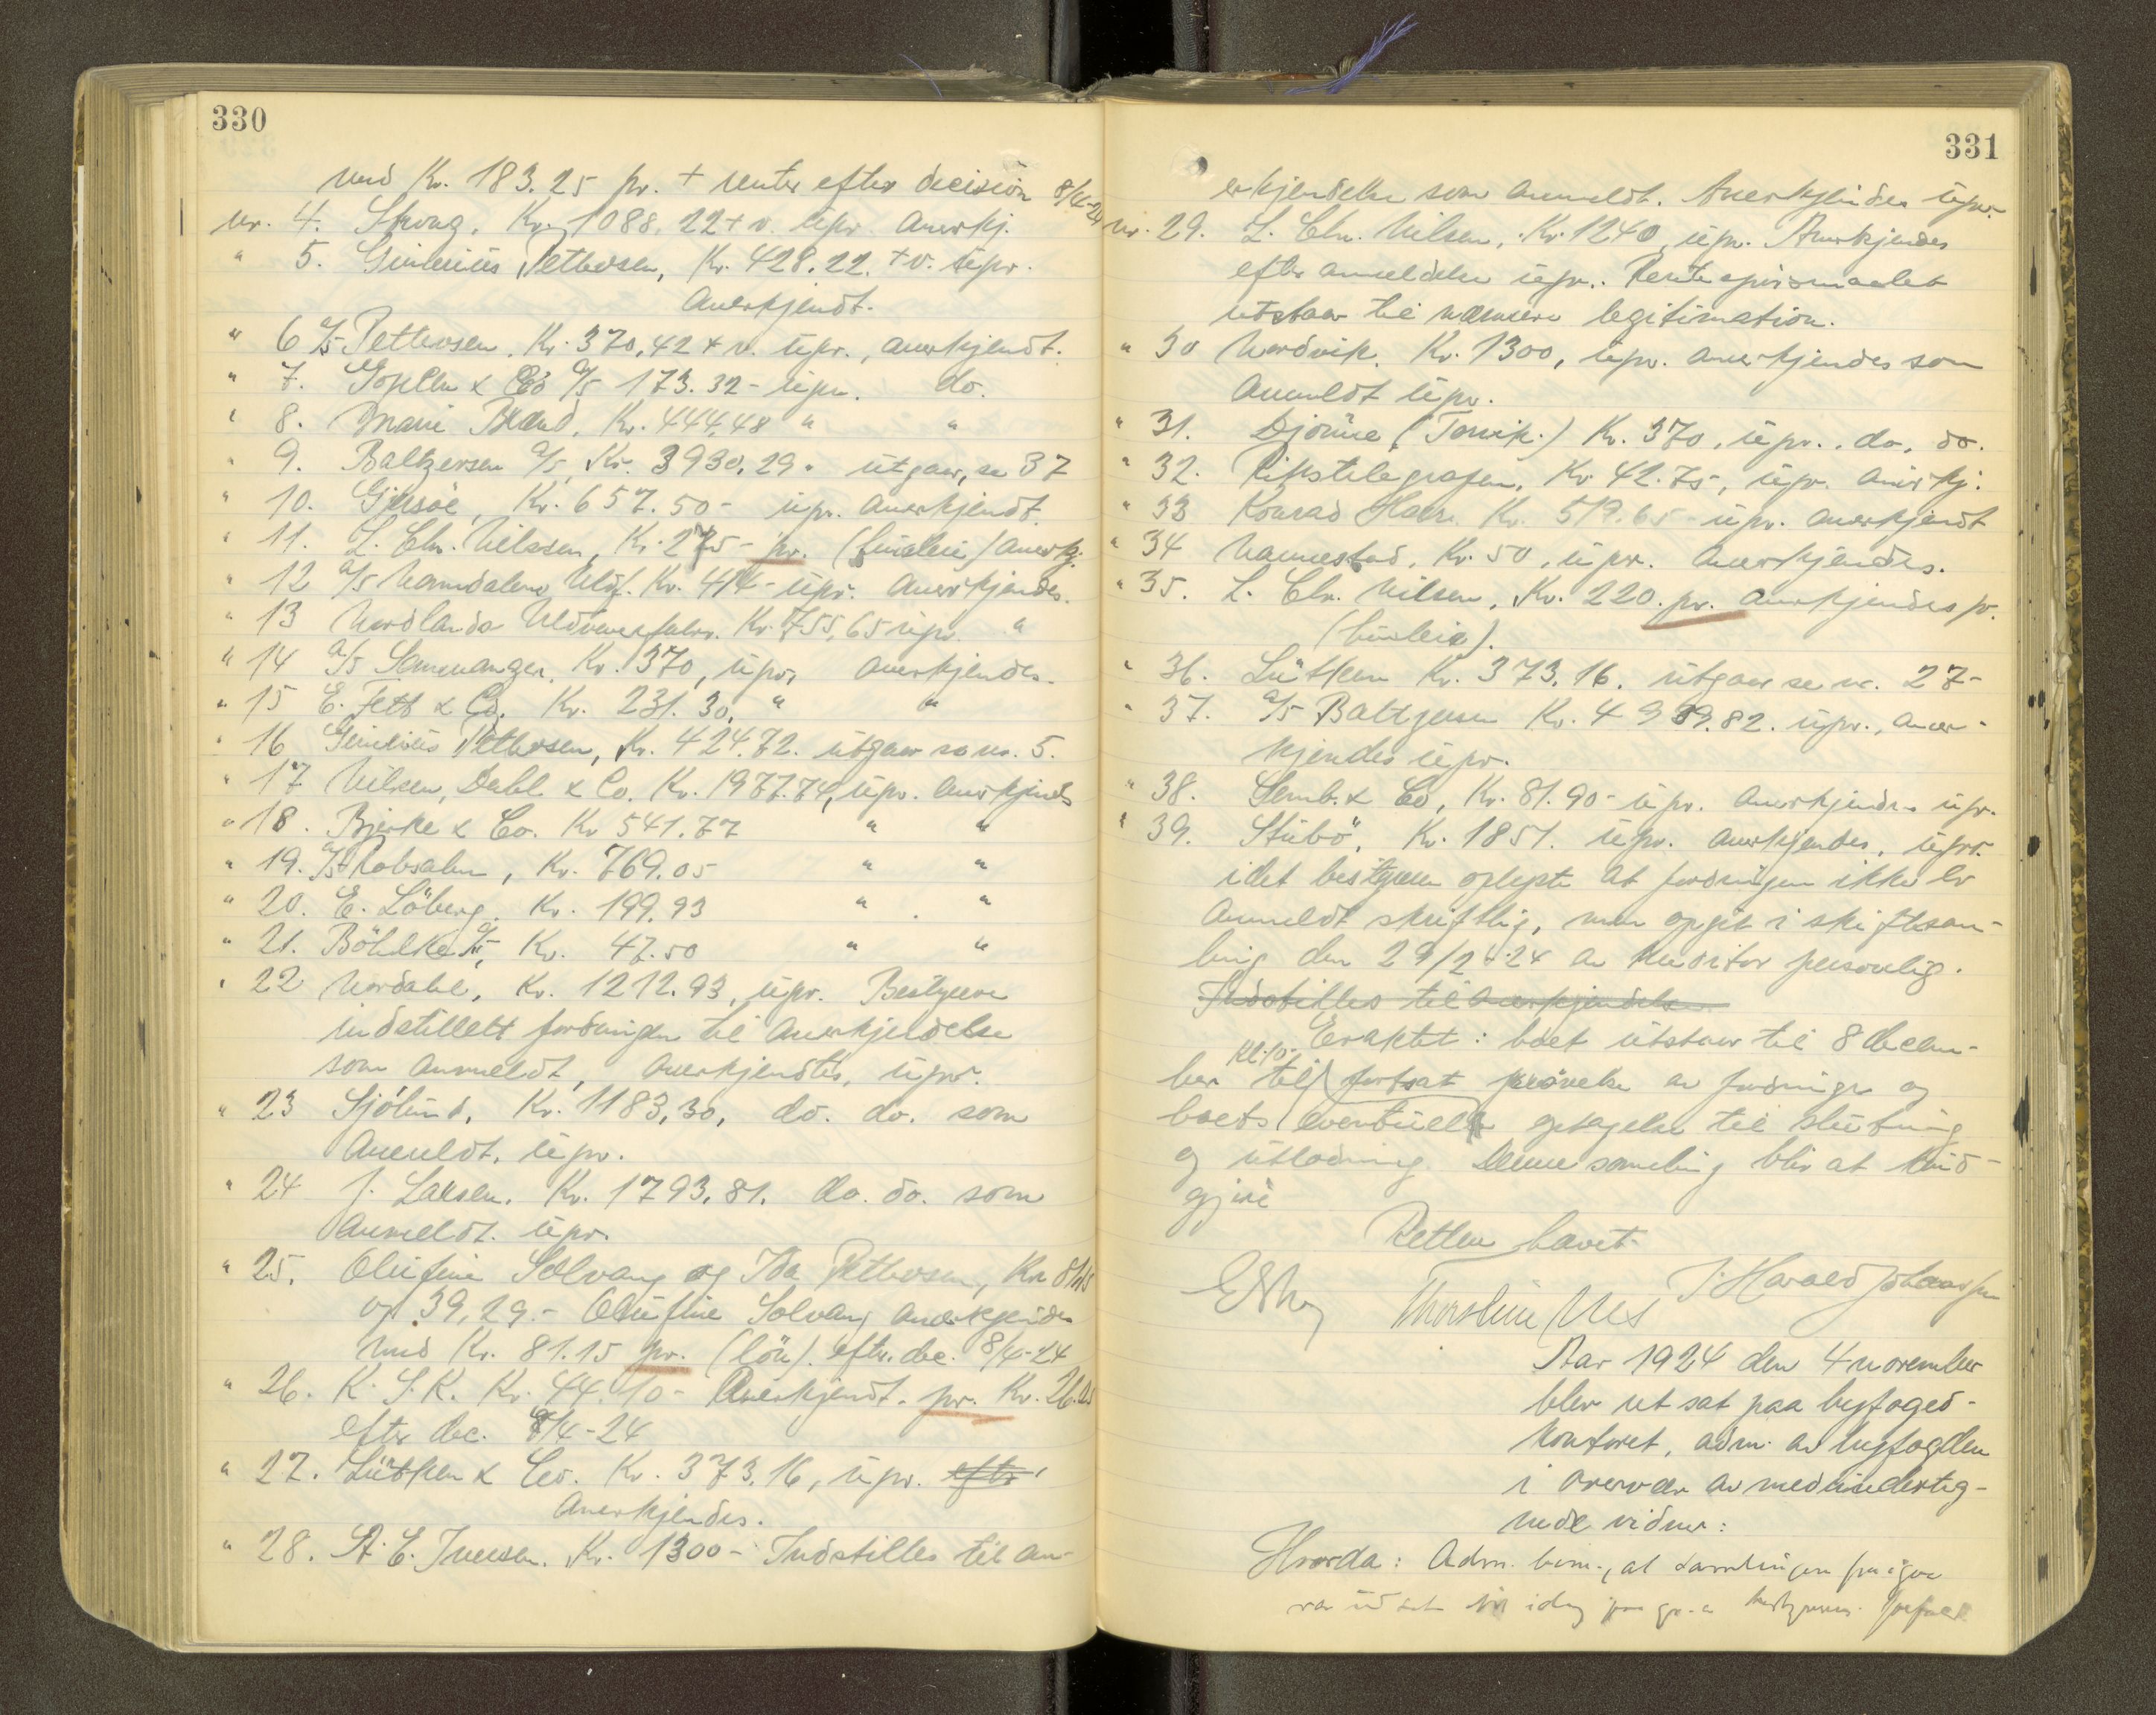 330
med Kr. 183.25 pr. + renter efter decision 8/4-24
nr. 4. Skvag. Kr. 1088.22 + r. upr. anerkj.
" 5. Pettersen, Kr. 428.22. + r. upr.
anerkjendt.
" 6 a/s Pettersen. Kr. 370,42 + r. upr., anerkjendt.
" 7. Goplen & Co a/s 173.32 - upr. do.
" 8. Marie Brand. Kr. 444.48 " "
" 9. Baltzersen a/s, Kr. 3930.29. utgaar, se 37
" 10. Gjessøe, Kr. 657.50 - upr. anerkjendt.
" 11. L. Chr. Nilssen, Kr. 275 - pr. (husleie) anerkj.
" 12 a/s Namdalens Uldf. Kr. 414 - upr. anerkjendes.
" 13 Nordlands Uldvarefabr. Kr. 755,65 upr. "
" 14 a/s Samnanger. Kr. 370, upr, anerkjendes.
" 15 E. Fett & Co. Kr. 231.30. " "
" 16 Pettersen, Kr. 424.72. utgaar se nr. 5.
" 17 Nilsen, Dahl & Co. Kr. 1977.74, upr. anerkjendes
" 18. Bjerke & Co. Kr 541.77 " "
" 19. a/s Robsahm, Kr. 769.05 " "
" 20. E. Löberg. Kr. 199.93 " "
" 21. Böhlke a/s, Kr. 47.50 " "
" 22 Nordahl, Kr. 1212.93, upr. Bestyrere
indstillett fordringen til anerkjendelse
som anmeldt, anerkjendtes, upr.
" 23 Sjölund, Kr. 1183,30, do. do. som
anmeldt, upr.
" 24 J. Larsen. Kr. 1793.81. do. do. som
anmeldt. upr.
" 25. Olufine Solvang og Ida Pettersen, Kr.
og 39,29.- Olufine Solvang anerkjendes
med Kr. 81.15 pr. (lön). efter dec. 8/4-24
" 26. K.S.K. Kr. 44.10 - Anerkjendt. pr. Kr.
efter dec. 8/4-24
" 27. Lütken & Co. Kr. 373.16, upr. efter
anerkjendes.
" 28. St. E. Iversen. Kr. 1300 - Indstilles til an-
331
erkjendelse som anmeldt. Anerkjendes upr.
nr. 29. L. Chr. Nilsen, Kr. 1240, upr. Anerkjendes
efter anmeldelse upr.. Rentespörsmaalet
utstaar til nærmere legitimation.
" 30 Nordvik. Kr. 1300, upr. anerkjendes som
anmeldt upr.
" 31. Djönne (Torvik.) Kr. 370, upr., do. do.
" 32. Rikstelegrafen. Kr. 42.75, upr. anerkj.
" 33 Konrad Kr. 519.65 - upr. anerkjendt
" 34 Nannestad. Kr. 50, upr. Anerkjendes.
" 35. L. Chr. Nilsen. Kr. 220. pr. anerkjendes pr.
(husleie).
" 36. Lütken Kr. 373.16. utgaar se nr. 27 -
" 37. a/s Baltzersen Kr. 4939.82. upr., aner-
kjendes upr.
" 38. Semb. & Co, Kr. 81.90 - upr. anerkjendes upr.
" 39. Stubö, Kr. 1851. upr. anerkjendes, upr.
idet bestyreren oplyste at fordringen ikke er
anmeldt skriftlig, men opgit i skiftesam-
ling den 29/2-24 av kreditor personlig.
Indstilles til anerkjendelse.
Eraktet: boet utstaar til 8 decem-
ber kl. 10 - til fortsat prövelse av fordringer og
boets eventuelle optagelse til slutning
og utlodning. Denne samling blir at kund-
gjöre
Retten hævet.
Thorstein Nes J. Harald Johanssen
Aar 1924 den 4 november
blev ret sat paa byfoged-
kontoret, adm. av byfogden
i overvær av medunderteg-
nede vidner:
Hvorda: Adm. bem., at samlingen fra igaar
var udsat til idag paa gr. a bestyrerens forfald